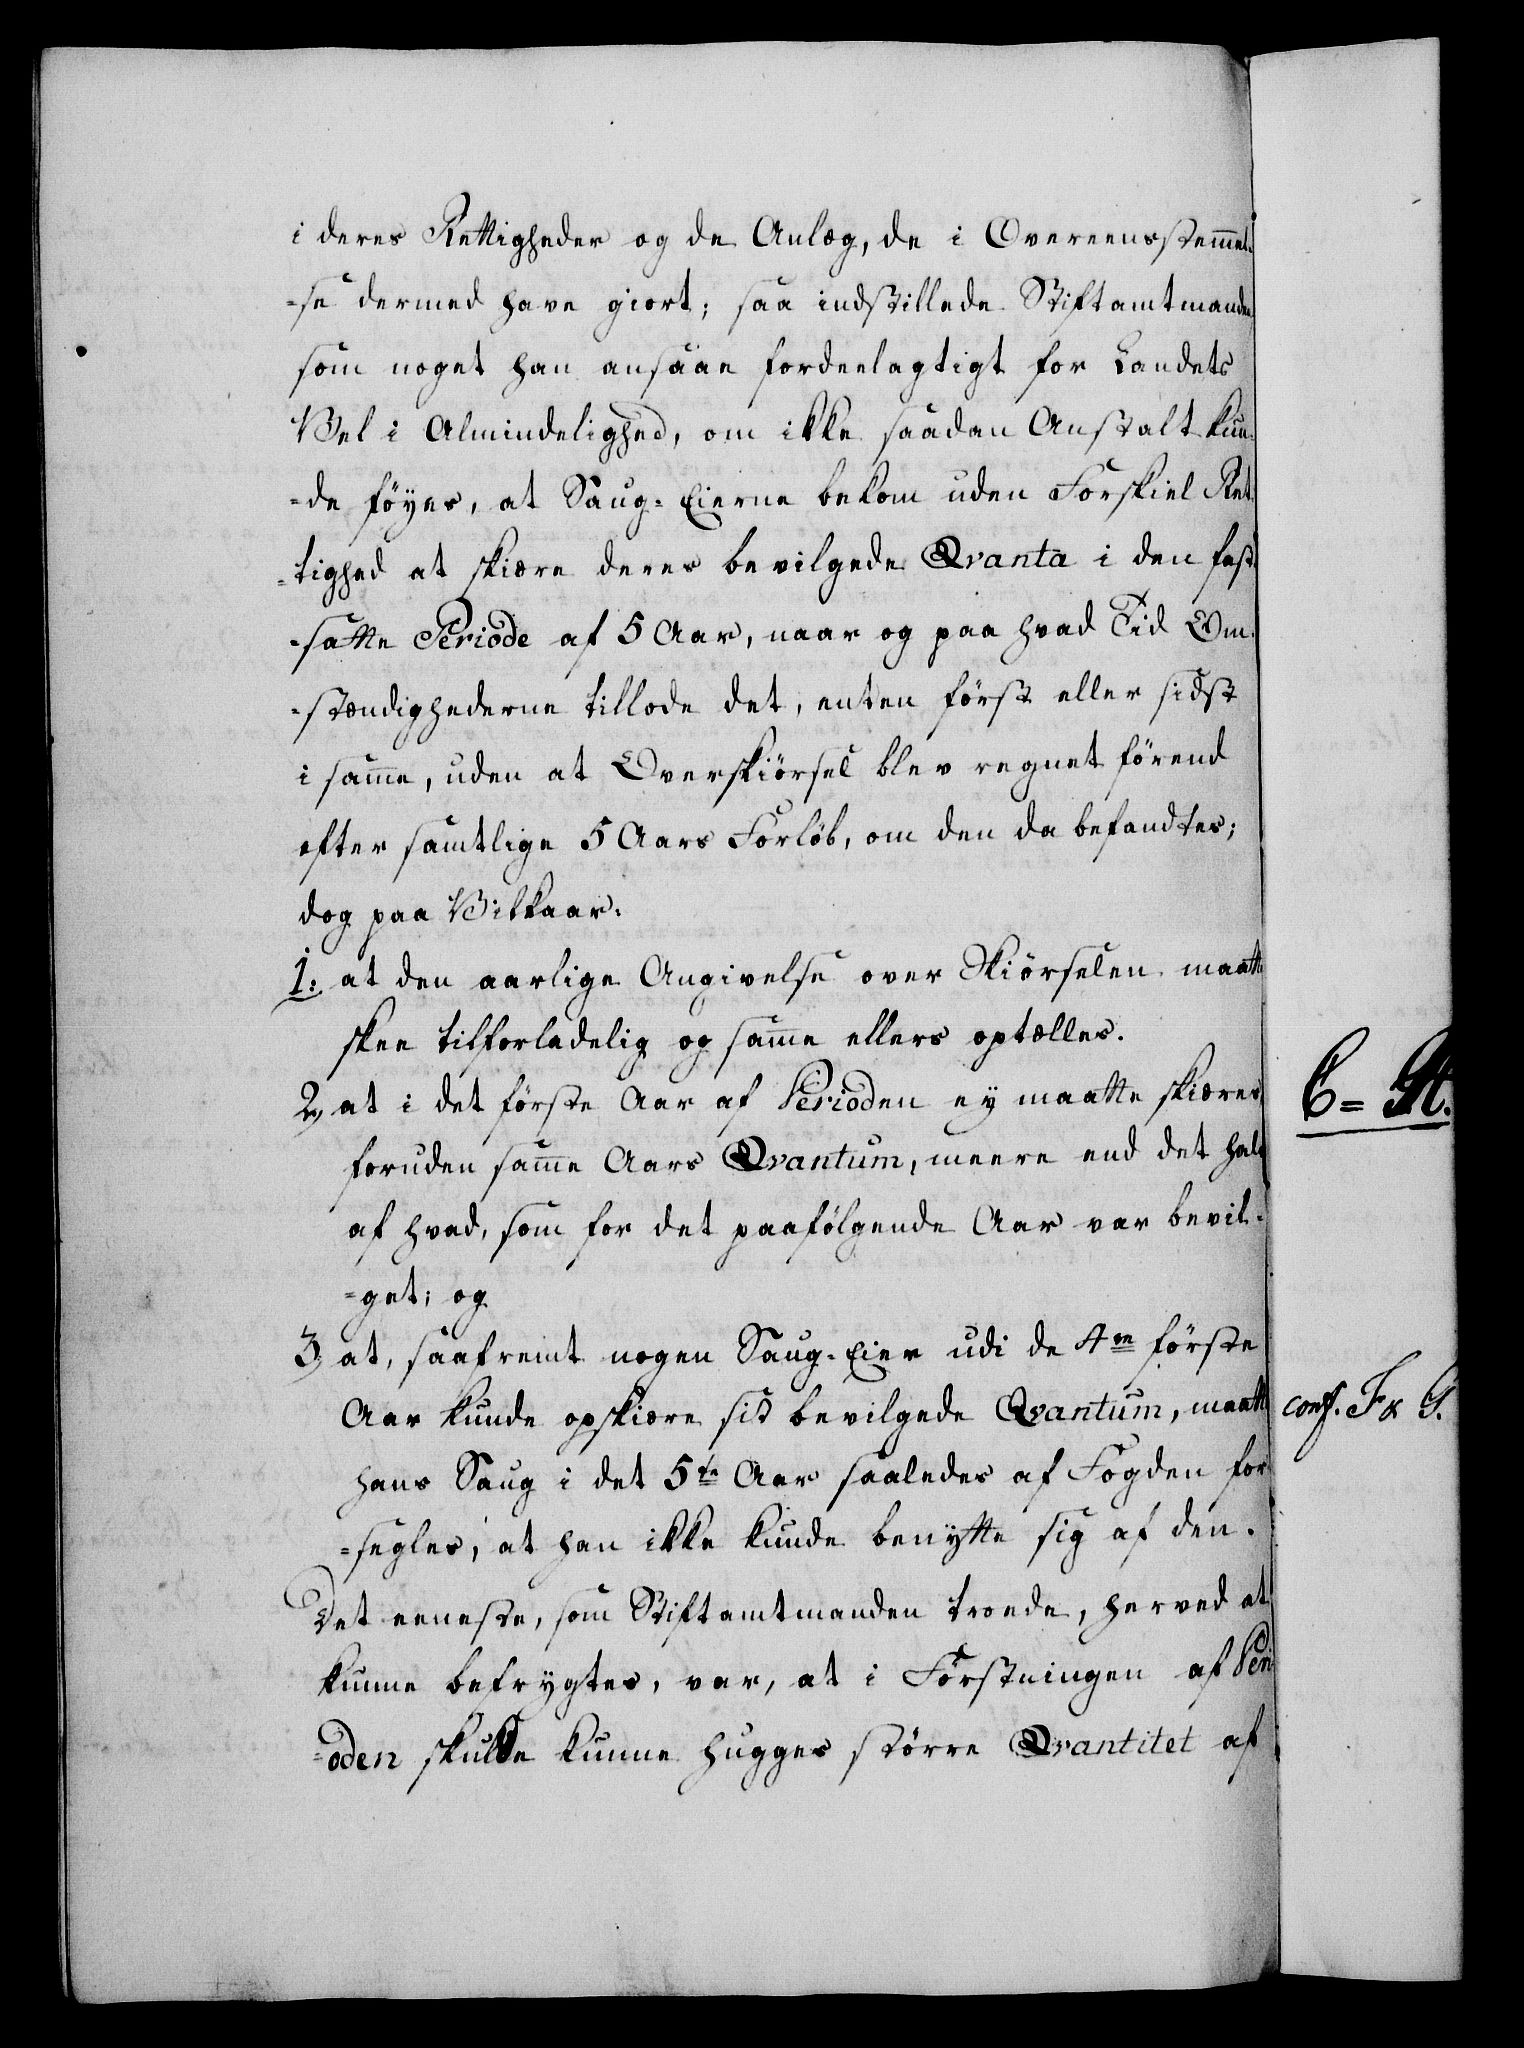 i deres Rettigheder og de Anlæg, de i Overeensstemmel-
-se dermed have giort; saa indstillede Stiftamtmanden
som noget han ansaae fordeelagtigt for Landets
Vel i Almindelighed, om ikke saadan Anstalt kun-
-de föyes, at Saug-Eierne bekom uden Forskiel Ret-
-tighed at skiære deres bevilgede Qvanta i den fast-
-satte Periode af 5 Aar, naar og paa hvad Tid Om-
-stændighederne tillode det, enten först eller sidst
i samme, uden at Overskiörsel blev regnet förend
efter samtlige 5 Aars Forlöb, om den da befandtes;
dog paa Vilkaar.
1. at den aarlige Angivelse over Skiörselen maatte
skee tilforladelig og samme ellers optælles.
2, at i det förste Aar af Perioden ey maatte skiæres
foruden samme Aars Qvantum, meere end det halve
af hvad, som for det paafölgende Aar var bevil-
-get; og
3, at, saafremt nogen Saug-Eier udi de 4re förste
Aar kunde opskiære sit bevilgede Qvantum, maatte
hans Saug i det 5te Aar saaledes af Fogden for-
-segles, at han ikke kunde benytte sig af den.
Det eeneste, som Stiftamtmanden troede, herved at
kunne befrygtes, var, at i Förstningen af Peri-
-oden skulde kunne hugges större Qvantitet af
conf. F & G.